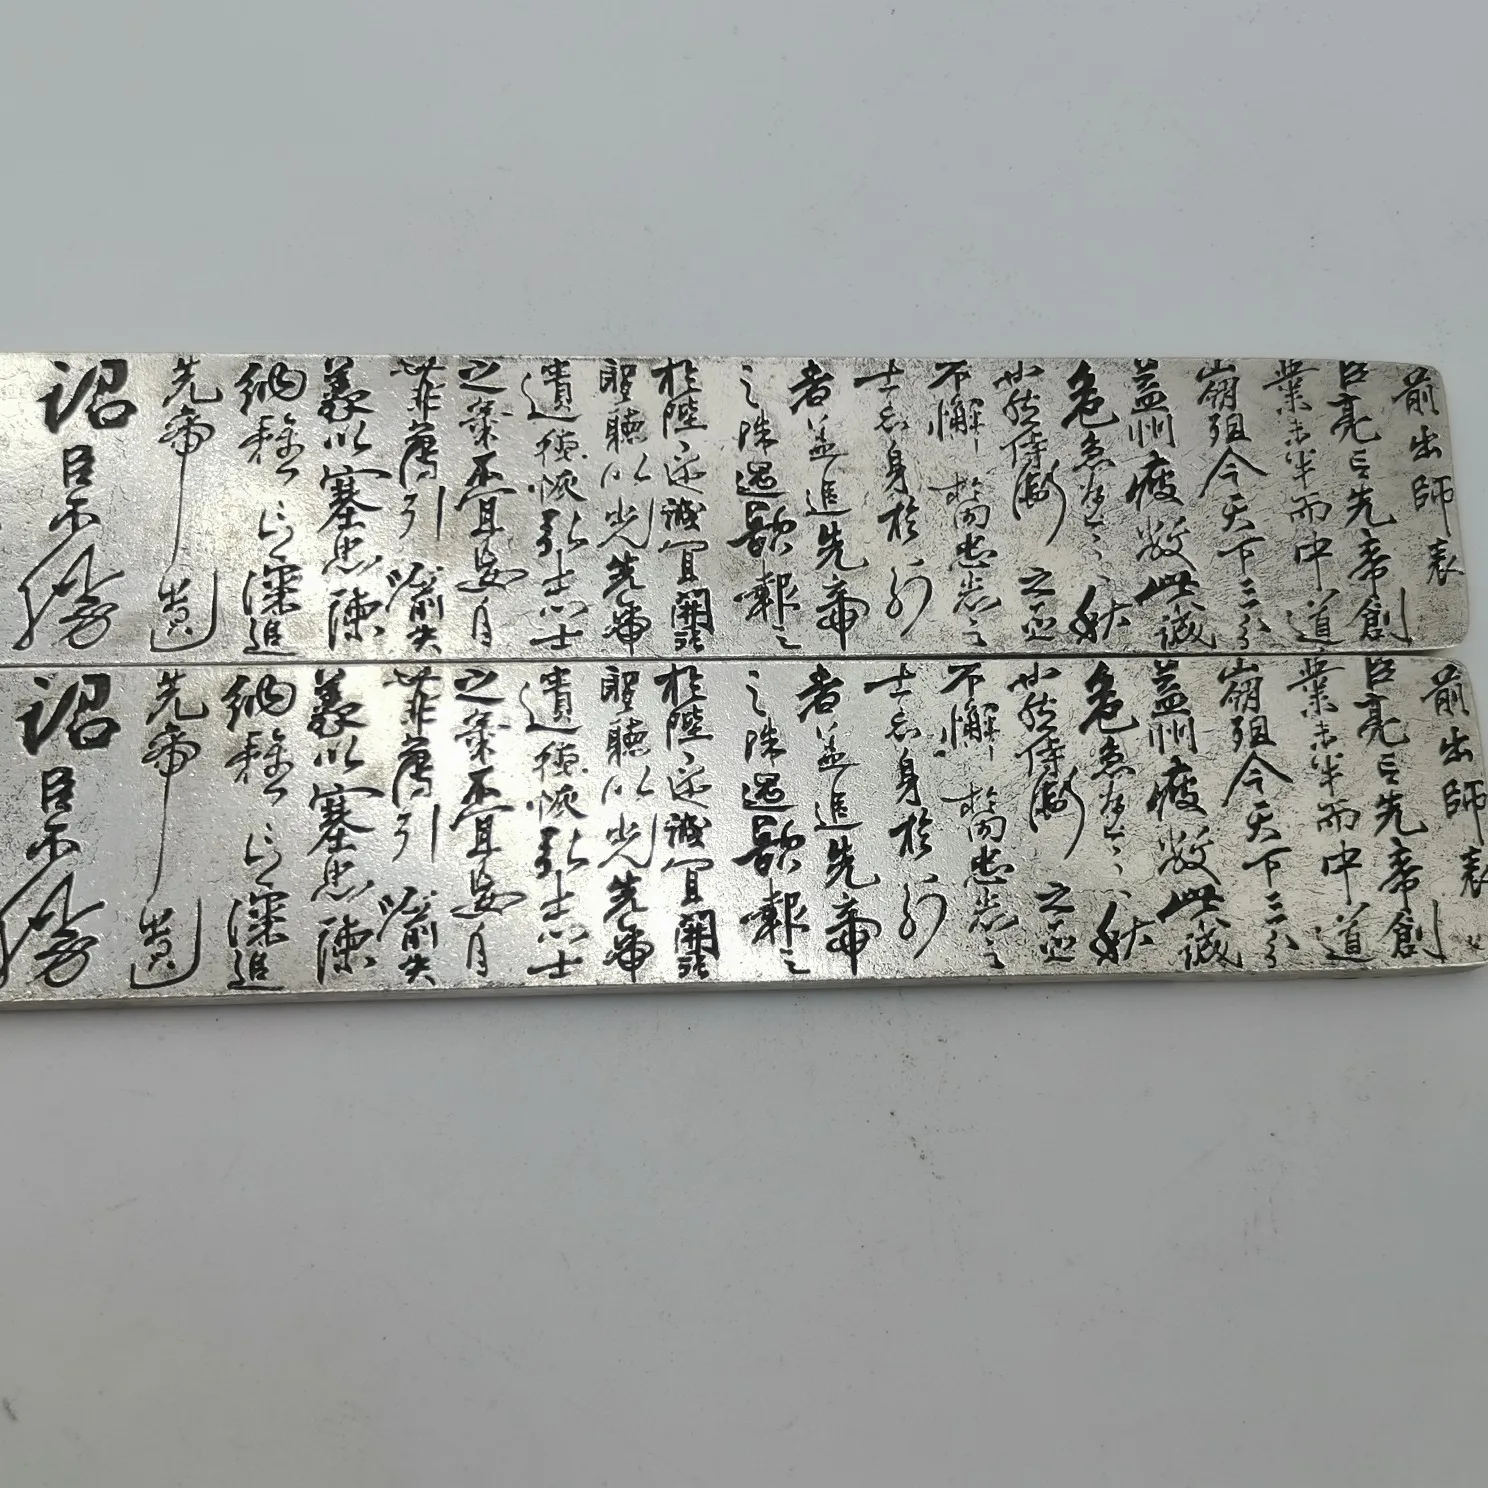 前出師表
臣亮言先帝創
業未半而中道
崩殂今天下三分
益州疲敝此誠
危急存亡之秋
也然侍衛之臣
不懈於內忠志之
士忘身於外
者蓋追先帝
之殊遇欲報之
於陛下也誠宜開張
聖聽以光先帝
遺德恢弘志士
之氣不宜妄自
菲薄引喻失
義以塞忠諫
納雅言深追
先帝遺
詔臣不勝
前出師表
臣亮言先帝創
業未半而中道
崩殂今天下三分
益州疲敝此誠
危急存亡之秋
也然侍衛之臣
不懈於內忠志之
士忘身於外
者蓋追先帝
之殊遇欲報之
於陛下也誠宜開張
聖聽以光先帝
遺德恢弘志士
之氣不宜妄自
菲薄引喻失
義以塞忠諫
納雅言深追
先帝遺
詔臣不勝